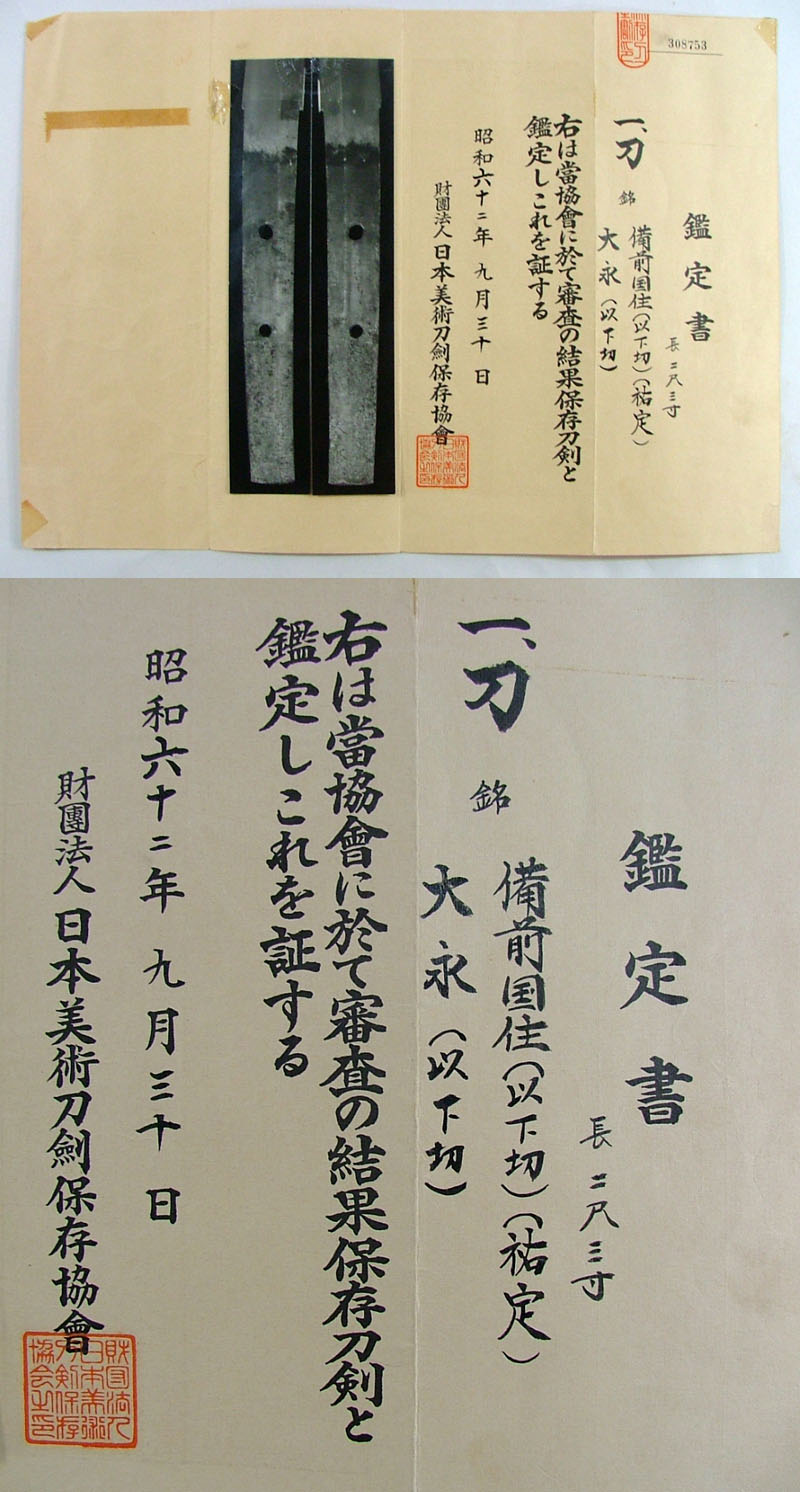 308753
鑑定書
長二尺三寸
一、刀 銘 備前国住(以下切)(祐定)
大永(以下切)
右は當協會に於て審査の結果保存刀剣と
鑑定しこれを証する
昭和六十二年九月三十日
財團法人日本美術刀劍保存協會
鑑定書
長二尺三寸
一、刀 銘 備前国住(以下切)(祐定)
大永(以下切)
右は當協會に於て審査の結果保存刀剣と
鑑定しこれを証する
昭和六十二年九月三十日
財團法人日本美術刀劍保存協會